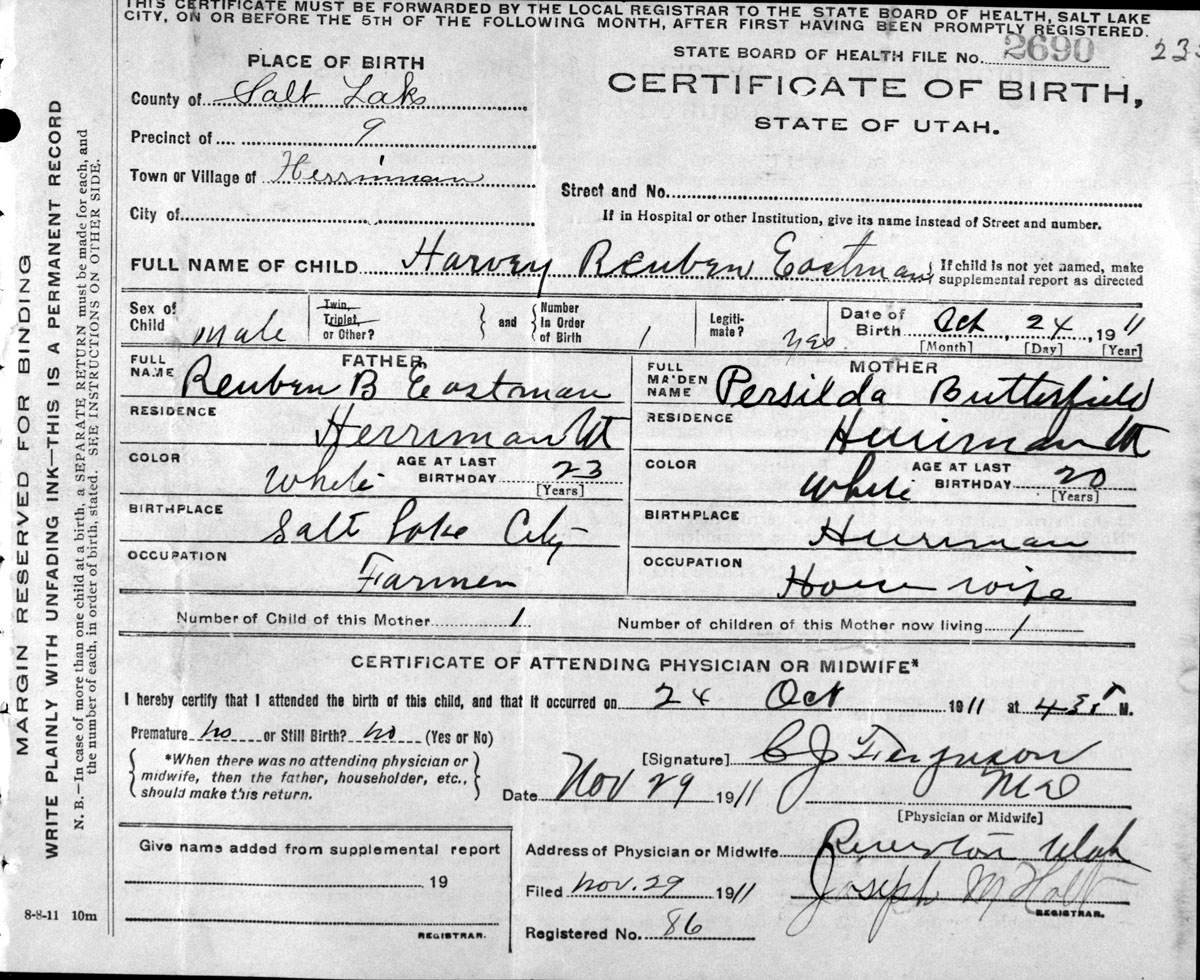 THIS CERTIFICATE MUST BE FORWARDED BY THE LOCAL REGISTRAR TO THE STATE BOARD OF HEALTH, SALT LAKE
CITY, ON OR BEFORE THE 5TH OF THE FOLLOWING MONTH, AFTER FIRST HAVING BEEN PROMPTLY REGISTERED.
STATE BOARD OF HEALTH FILE No. 2690
PLACE OF BIRTH
CERTIFICATE OF BIRTH,
STATE OF UTAH.
County of Salt Lake
Precinct of 9
Town or Village of Herriman
Street and No.
City of
If in Hospital or other Institution, give its name instead of Street and number.
FULL NAME OF CHILD Harvey Reuben Eastman { If child is not yet named, make
supplemental report as directed
Sex of Child male Twin, Triplet, or Other? } and { Number In Order of Birth 1 Legiti-mate? yes Date of Birth Oct 24, 1911
[Month] [Day] [Year]
FATHER
FULL NAME Reuben B Eastman
RESIDENCE Herriman Ut
COLOR White AGE AT LAST BIRTHDAY 23
[Years]
BIRTHPLACE Salt Lake City
OCCUPATION Farmer
MOTHER
FULL MAIDEN NAME Persilda Butterfield
RESIDENCE Herriman Ut
COLOR White AGE AT LAST BIRTHDAY 20
[Years]
BIRTHPLACE Herriman
OCCUPATION House wife
Number of Child of this Mother 1 Number of children of this Mother now living 1
CERTIFICATE OF ATTENDING PHYSICIAN OR MIDWIFE*
I hereby certify that I attended the birth of this child, and that it occurred on 24 Oct 1911 at M.
Premature no or Still Birth? no (Yes or No)
{ *When there was no attending physician or
midwife, then the father, householder, etc.,
should make this return. }
[Signature] C J Ferguson
MD
Date Nov 29 1911
[Physician or Midwife]
Give name added from supplemental report
19
REGISTRAR.
Address of Physician or Midwife Riverton Utah
Filed Nov. 29 1911 Joseph M Holt
REGISTRAR.
Registered No. 86
8-8-11 10m
MARGIN RESERVED FOR BINDING
WRITE PLAINLY WITH UNFADING INK—THIS IS A PERMANENT RECORD
N. B.—In case of more than one child at a birth, a SEPARATE RETURN must be made for each, and
the number of each, in order of birth, stated. SEE INSTRUCTIONS ON OTHER SIDE.